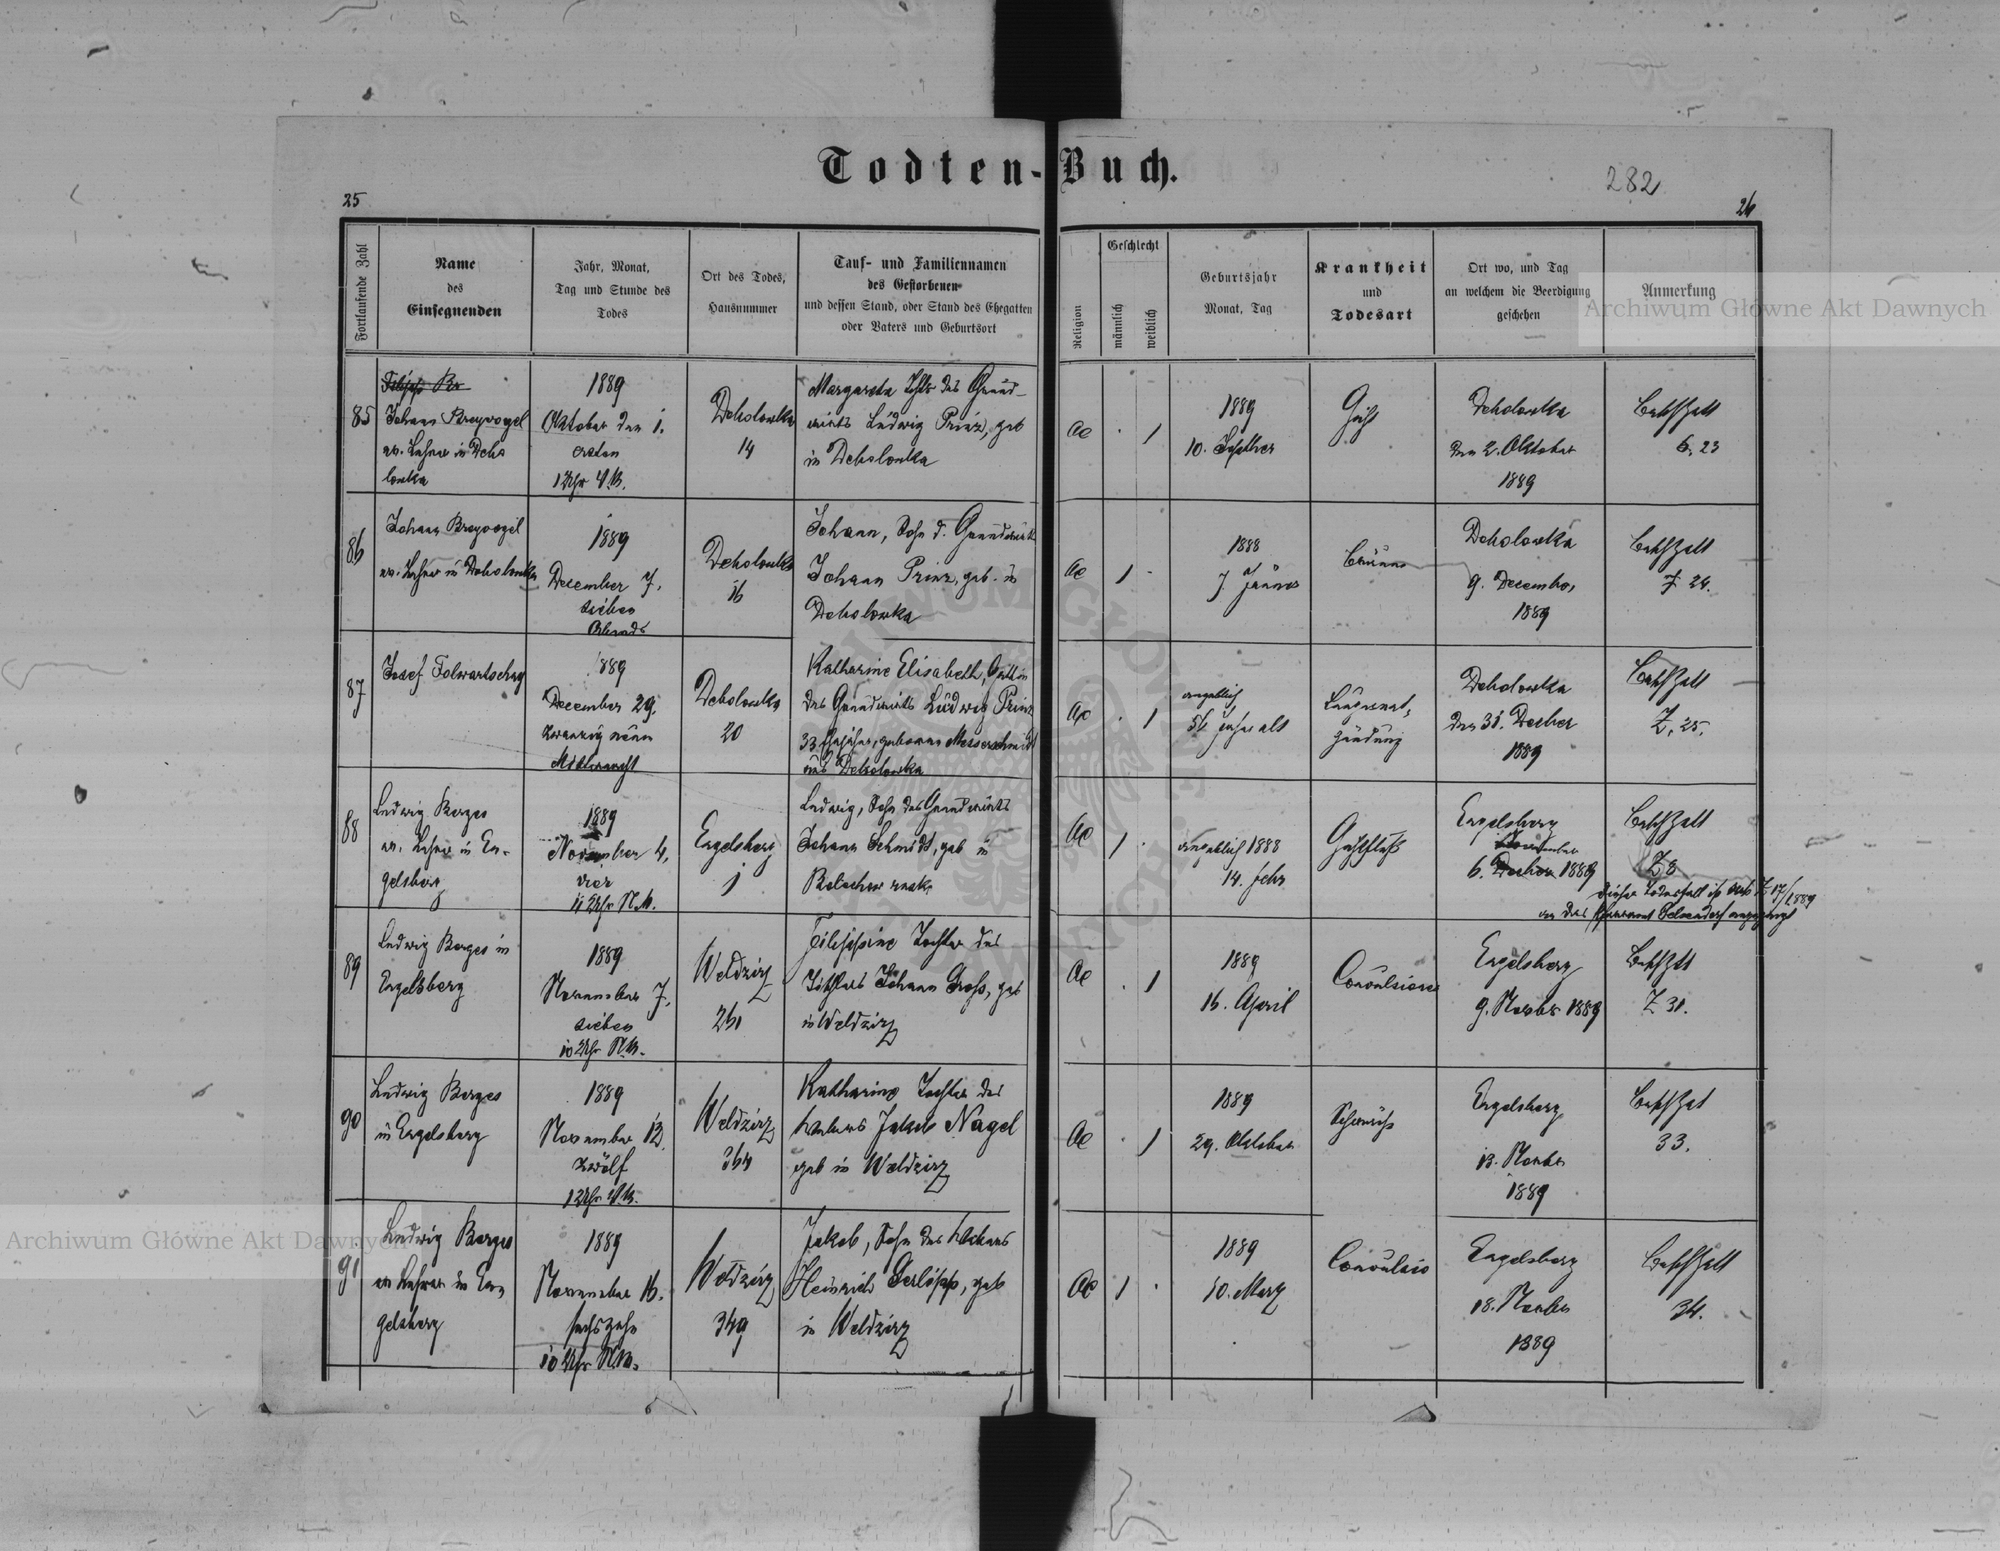 Todten-Buch.
282
25
26
Fortlaufende Zahl
Name
des
Einsegnenden
Jahr, Monat,
Tag und Stunde des
Todes
Ort des Todes,
Hausnummer
Tauf- und Familiennamen
des Gestorbenen
und dessen Stand, oder Stand des Ehegatten
oder Vaters und Geburtsort
Religion
Geschlecht
männlich
weiblich
Geburtsjahr
Monat, Tag
Krankheit
und
Todesart
Ort wo, und Tag
an welchem die Beerdigung
geschehen
Anmerkung
85
Johann Breyvogel
ev. Lehrer in Debo
lowka
1889
Oktober den 1.
ersten
1 Uhr V.M.
Debolowka
14
Margareta Tochter des Grund-
wirts Ludwig Prinz, geb
in Debolowka
AC
1
1889
10. September
Debolowka
den 2. Oktober
1889
23
86
Johann Breyvogel
ev. Lehrer in Debolowka
1889
December 7.
sieben
Abends
Debolowka
16
Johann, Sohn d. Grundwirts
Johann Prinz, geb. in
Debolowka
AC
1
1888
7. Jänner
Bräune
Debolowka
9. December
1889
Z. 24.
87
Josef Folwartschny
1889
December 29.
zwanzig neun
Mitternacht
Debolowka
20
Katharine Elisabeth, Gattin
des Grundwirts Ludwig Prinz
geborene Messerschmidt
aus Debolowka
1
angeblich
56 Jahre alt
Lungenent-
zündung
Debolowka
den 31. Decber
1889
Z. 25.
88
Ludwig Berges
ev. Lehrer in En-
gelsberg
1889
November 4.
vier
11 Uhr N.M.
Engelsberg
1
Ludwig, Sohn des Grundwirts
Johann Schmidt, geb in
AC
1
angeblich 1888
14. Febr
Engelsberg
November
6. 1889
Z 8
dieser Todesfall ist sub Z 17/1889
an das Pfarramt Gelsendorf angezeigt
89
Ludwig Berges in
Engelsberg
1889
November 7.
sieben
10 Uhr N.M.
Weldzirz
261
Filippine Tochter des
Tischlers Johann Groß, geb
in Weldzirz
AC
1
1889
16. April
Convulsionen
Engelsberg
9. Novbr 1889
Z 31.
90
Ludwig Berges
in Engelsberg
1889
November 12.
zwölf
1 Uhr V.M.
Weldzirz
364
Katharina Tochter des
Jakob Nagel
geb in Weldzirz
AC
1
1889
29. Oktober
Schwäche
Engelsberg
13. Novbr
1889
33.
91
Ludwig Berges
ev Lehrer in En-
gelsberg
1889
November 16.
sechszehn
10 Uhr N.M.
Weldzirz
349
Jakob, Sohn des
Heinrich Gerlipp, geb
in Weldzirz
AC
1
1889
10. März
Convulsio
Engelsberg
18. Novber
1889
34.
Archiwum Główne Akt Dawnych
Archiwum Główne Akt Dawnych